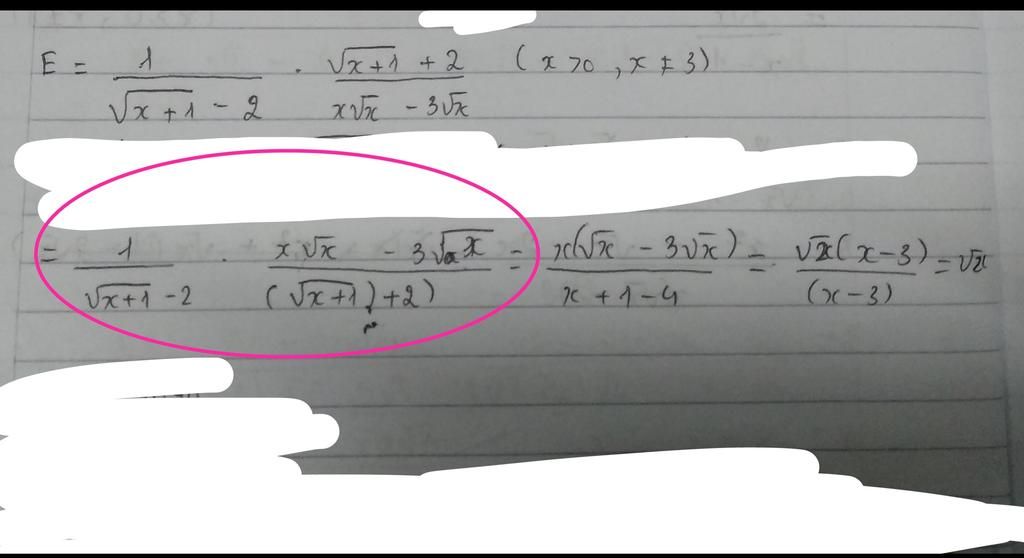 E = 1/(√(x+1) - 2) . (√(x+1) + 2)/(x√x - 3√x) (x > 0, x ≠ 3)
= 1/(√(x+1) - 2) . (x√x - 3√x)/((√(x+1)) + 2) = x(√x - 3√x)/(x + 1 - 4) = √x(x - 3)/(x - 3) = √x